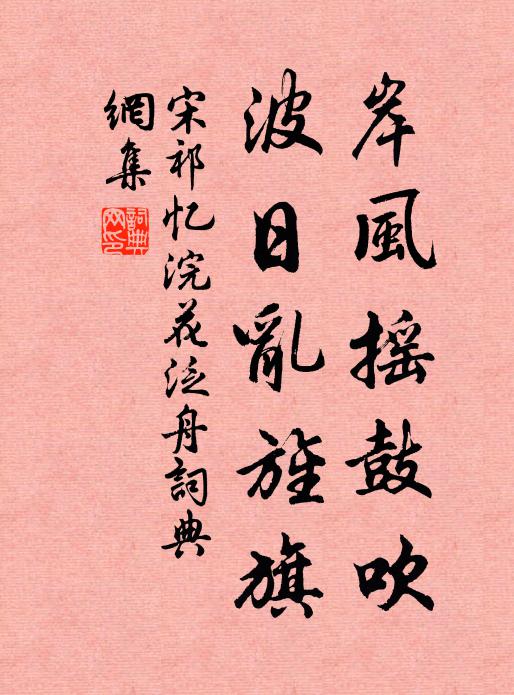 岸風摇鼓吹
波日亂旌旗
宋祁忆浣花泛舟詞典
網集
詞典網印